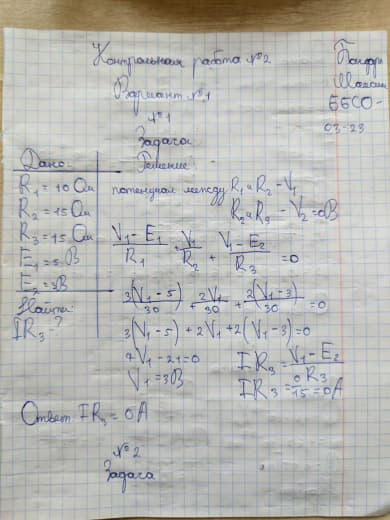 Контрольная работа №2
Вариант №1
ББСО-
03-23
№1
Задача
Дано:
R1 = 10 Ом
R2 = 15 Ом
R3 = 15 Ом
E1 = 5 В
E2 = 3 В
Найти:
IR3 - ?
Решение:
потенциал между R1 и R2 - V1
R2 и R3 - V2 = 0В
(V1 - E1)/R1 + V1/R2 + (V1 - E2)/R3 = 0
3(V1 - 5)/30 + 2V1/30 + 2(V1 - 3)/30 = 0
3(V1 - 5) + 2V1 + 2(V1 - 3) = 0
7V1 - 21 = 0
V1 = 3В
IR3 = (V1 - E2)/R3
IR3 = 0/15 = 0А
Ответ: IR3 = 0 А
№2
Задача